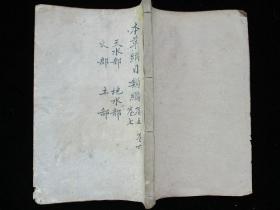 本草綱目類編 卷五 卷六
卷七
天水部 地水部
火部 土部